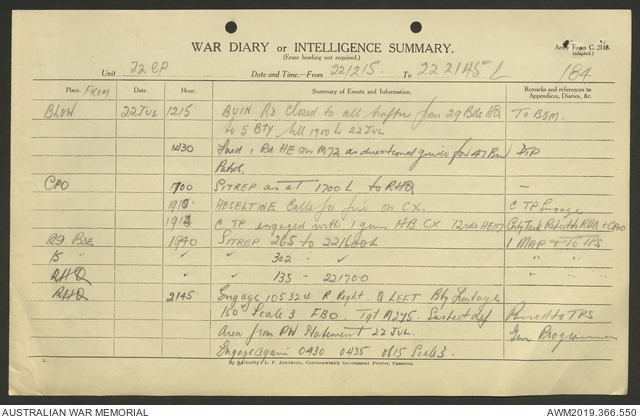 WAR DIARY or INTELLIGENCE SUMMARY.
(Erase heading not required.)
Army Form C. 2118.
(adapted.)
Unit 22 CP Date and Time.—From 221215. To 222145L 184
Place. FROM Date. Hour. Summary of Events and Information. Remarks and references to Appendices, Diaries, &c.
BLOW 22 JUL 1215 BUIN Rd Closed to all traffic from 29 Bde HQ To BSM.
to 5 Bty till 1700L 22 Jul
1430 Fired 1 Rd HE on M72 as directional guide for 47 Bn
Patrol.
CPO 1700 SITREP as at 1700 L to RHQ —
HESELTINE Calls for fire on CX. C TP Engage
C TP engaged with 1 gun HB CX 12 rds HE117
29 BDE 1940 SITREP 265 to 221600L 1 MAP + To TPS
15 " " 302 " " "
RHQ " " 135 " 221700 " "
RHQ 2145 Engage 105324 R Right. Q LEFT Bty
150° Scale 3 F80. Tgt M275. Suspect def Passed to TPS
Area from PW Statement 22 Jul. Gun Programme
Engage again 0430 0435 0615 Scale 3.
By Authority L. F. Johnston, Commonwealth Government Printer, Canberra.
AUSTRALIAN WAR MEMORIAL AWM2019.366.550